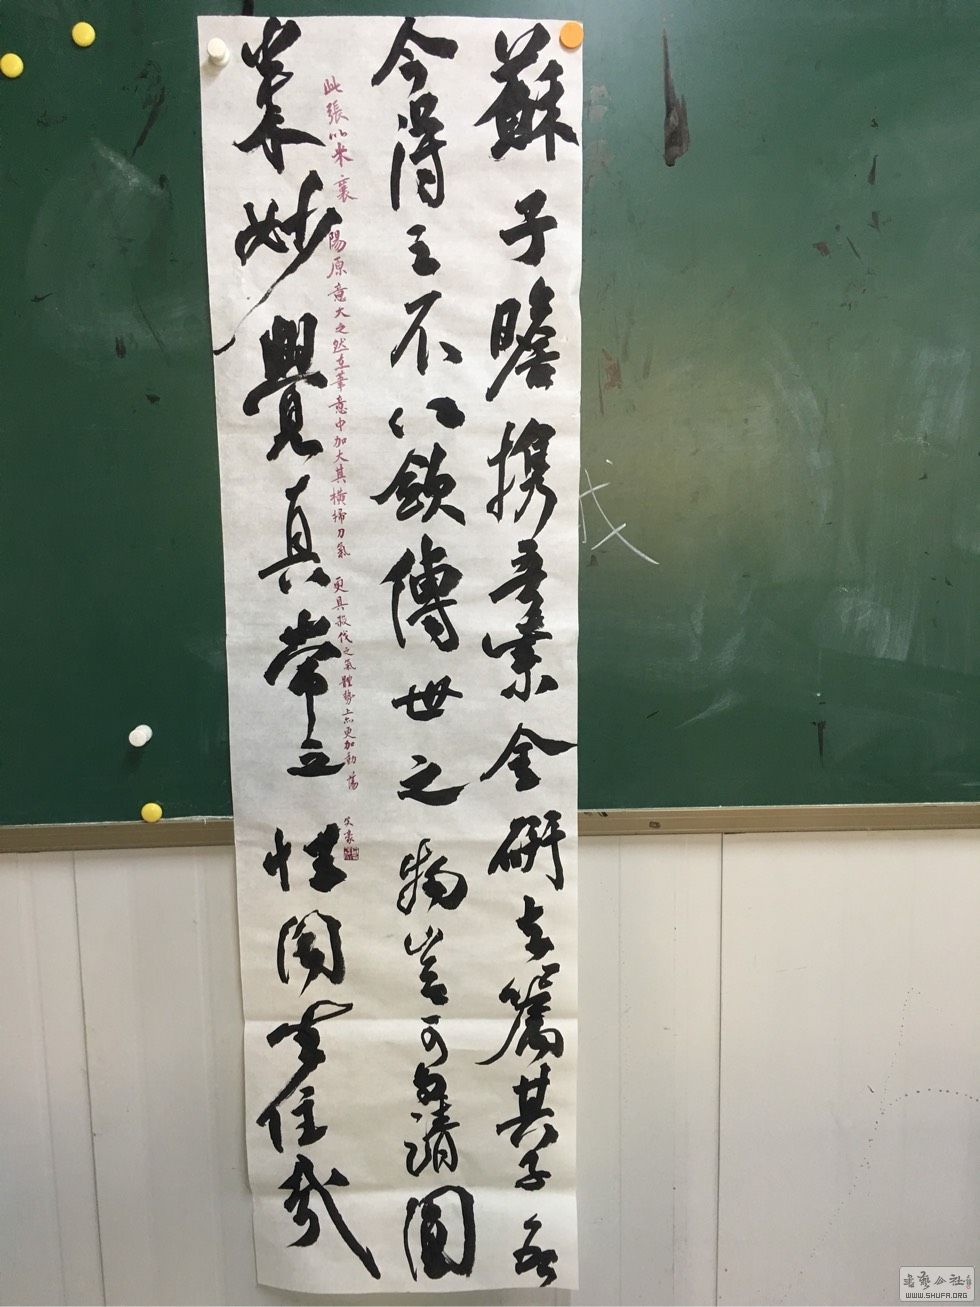 蘇子瞻携吾紫金研去嘱其子吾
今得之不以斂傳世之物豈可與清圓
来妙覺真常之性同去住哉
此張以米襄陽原意大之然在筆意中加大其橫掃刀氣更具殺伐之氣體勢上亦更加動蕩
書藝公社
WWW.SHUFA.ORG